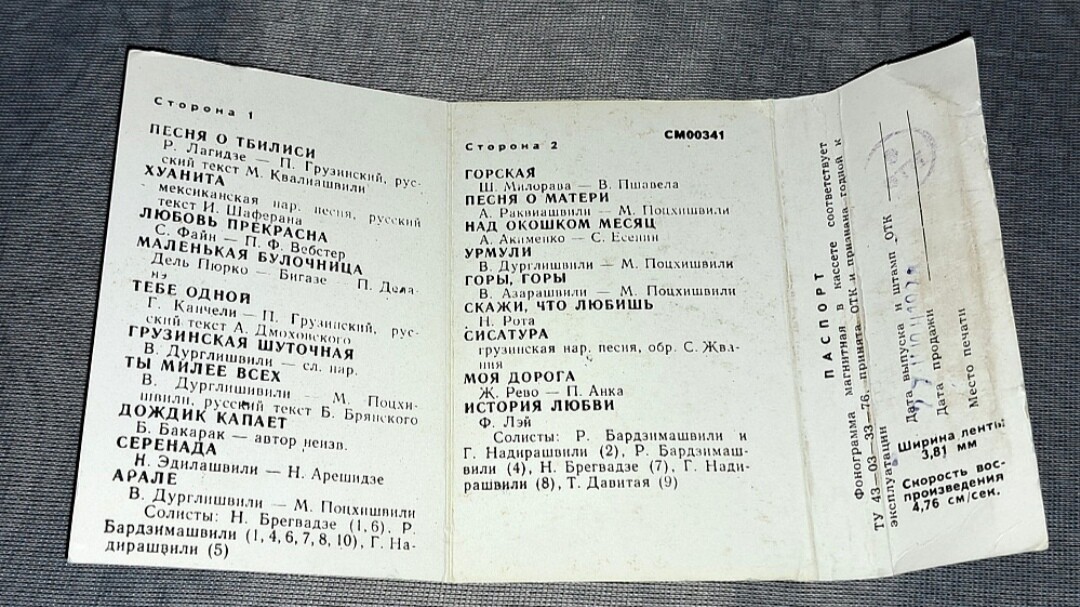 Сторона 1
ПЕСНЯ О ТБИЛИСИ
Р. Лагидзе — П. Грузинский, рус-
ский текст М. Квалиашвили
ХУАНИТА
мексиканская нар. песня, русский
текст И. Шаферана
ЛЮБОВЬ ПРЕКРАСНА
С. Файн — П. Ф. Вебстер
МАЛЕНЬКАЯ БУЛОЧНИЦА
Дель Пюрко — Бигазе — П. Дела-
нэ
ТЕБЕ ОДНОЙ
Г. Канчели — П. Грузинский, рус-
ский текст А. Дмоховского
ГРУЗИНСКАЯ ШУТОЧНАЯ
В. Дурглишвили — сл. нар.
ТЫ МИЛЕЕ ВСЕХ
В. Дурглишивили — М. Поцхи-
швили, русский текст Б. Брянского
ДОЖДИК КАПАЕТ
Б. Бакарак — автор неизв.
СЕРЕНАДА
Н. Эдилашвили — Н. Арешидзе
АРАЛЕ
В. Дурглишвили — М. Поцхишвили
Солисты: Н. Брегвадзе (1, 6), Р.
Бардзимашвили (1, 4, 6, 7, 8, 10), Г. На-
дирашвили (5)
СМ00341
Сторона 2
ГОРСКАЯ
Ш. Милорава — В. Пшавела
ПЕСНЯ О МАТЕРИ
А. Раквиашвили — М. Поцхишвили
НАД ОКОШКОМ МЕСЯЦ
А. Акименко — С. Есенин
УРМУЛИ
В. Дурглишвили — М. Поцхишвили
ГОРЫ, ГОРЫ
В. Азарашвили — М. Поцхишвили
СКАЖИ, ЧТО ЛЮБИШЬ
Н. Рота
СИСАТУРА
грузинская нар. песня, обр. С. Жва-
ния
МОЯ ДОРОГА
Ж. Рево — П. Анка
ИСТОРИЯ ЛЮБВИ
Ф. Лэй
Солисты: Р. Бардзимашвили и
Г. Надирашвили (2), Р. Бардзимаш-
вили (4), Н. Брегвадзе (7), Г. Нади-
рашвили (8), Т. Давитая (9)
ПАСПОРТ
Фонограмма магнитная в кассете соответствует
ТУ 43—03—33—76, принята ОТК и признана годной к
эксплуатации
Дата выпуска и штамп ОТК
Дата продажи
Место печати
Ширина ленты
3,81 мм
Скорость вос-
произведения
4,76 см/сек.